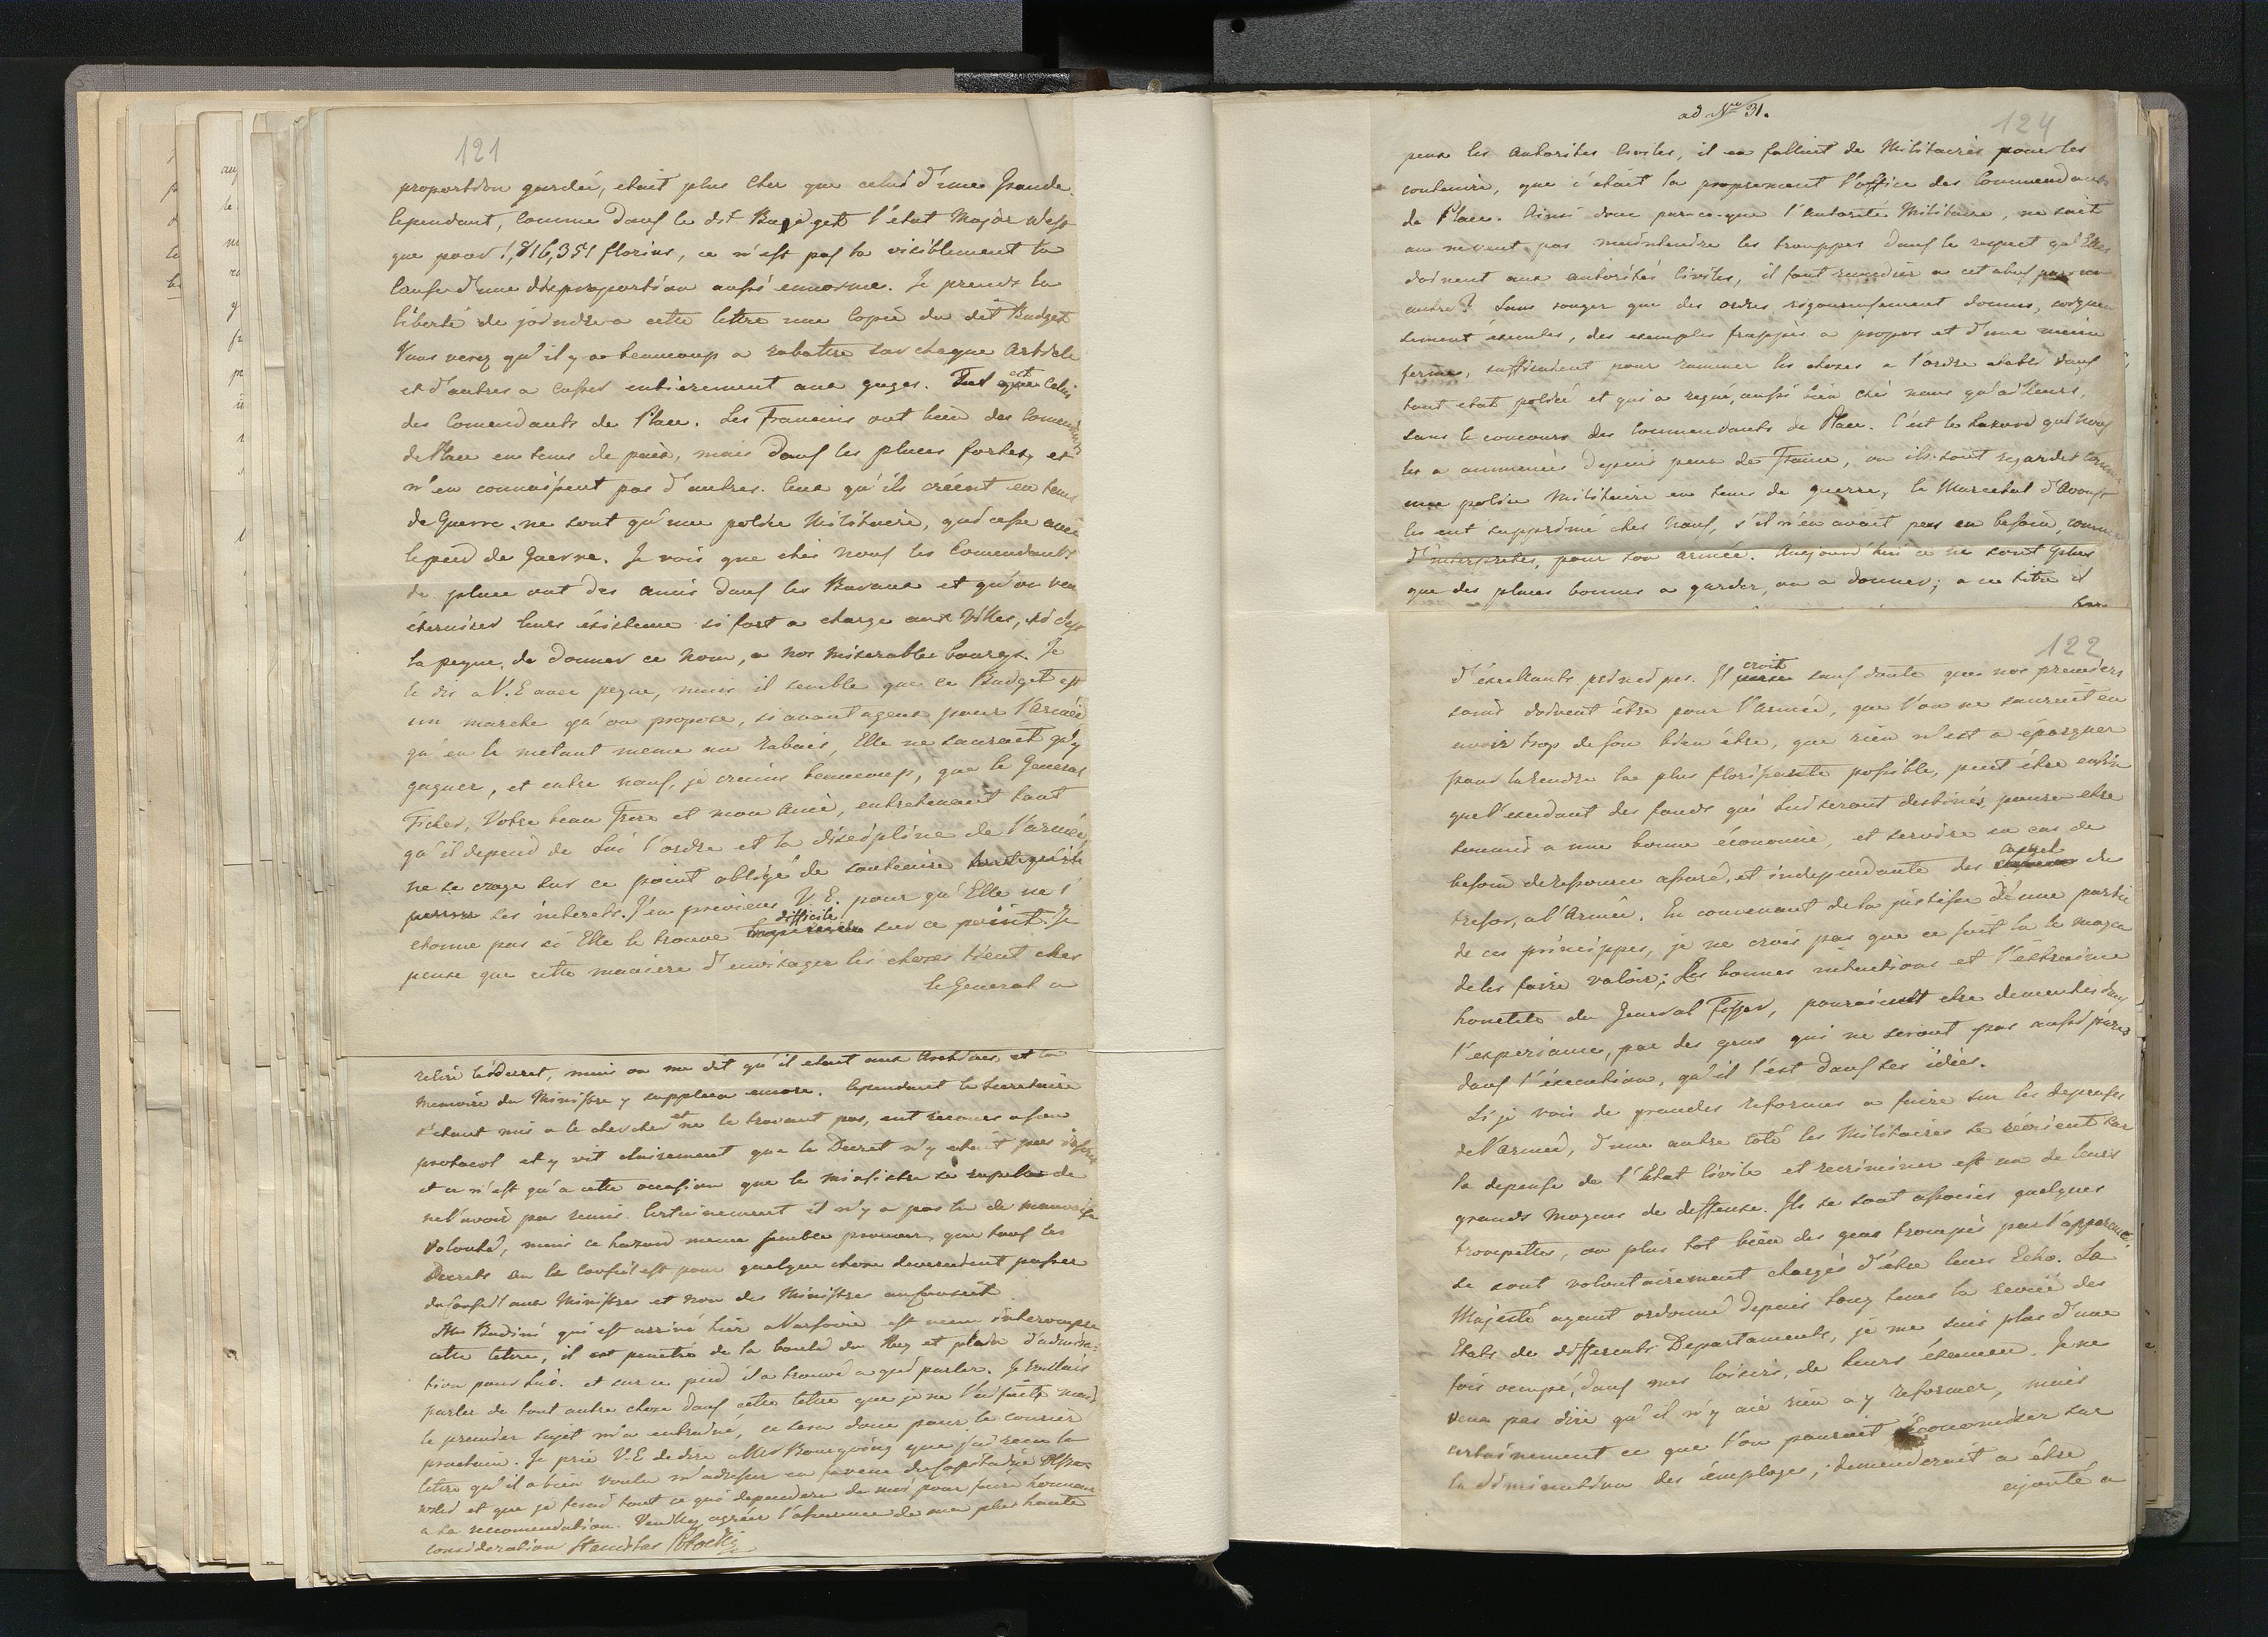 121
proportion gardeé, etait plus cher que celui d'une Grande.
Cependant, comme dans le dit Budget l'état Major n'est
que pour 1,816,351 florins, ce n'est pas la visiblement la
cause d'une disproportion aussi ennorme. Je prends la
liberté de joindre a cette lettre une Copie du dit Budget
Vous verez qu'il y a beaucoup a rabattre sur chaque Article
et d'autres a casser entierement aux gages. Tel est celui
des Comendants de Place. Les Francais ont bien des Comendants
de Place en tems de paix, mais dans les places fortes, et
n'en connaissent pas d'autres. Ceux qu'ils créent en tems
de Guerre, ne sont qu'une police Militaire, qui cesse avec
le pied de Guerre. Je vois que chés nous les Comendants
de place ont des amis dans les Bureaux et qu'on veut
éterniser leurs éxistence si fort a charge aux Villes, si c'est
la peyne, de donner ce nom, a nos miserables bourgs. Je
le dis a V. E avec peyne, mais il semble que ce Budget est
un marché qu'on propose, si avantageux pour l'Armée
qu'en le metant meme au rabais, Elle ne sauroit qu'y
gagner, et entre nous, je crains beaucoup, que le General
Ficher, Votre beau Frere et mon Ami, entretenant tant
qu'il depend de lui l'ordre et la discipline de l'armée
ne se croye sur ce point obligé de soutenire
ses interets. J'en previens V. E. pour qu'Elle ne s'
etonne pas si Elle le trouve difficile sur ce point. Je
pense que cette maniere d'envisager les choses tient chez
le General a
relire le decret, mais on me dit qu'il etait aux Archives, et la
Memoire du Ministre y supplea encore. Cependant le Secretaire
s'etant mis a le chercher et ne le trouvant pas, eut recours a son
protocol et y vit clairement que le Decret n'y etait pas inseré
et ce n'est qu'a cette occasion que le ministre se rapela de
ne l'avoir pas remis. Certainement il n'y a pas la de mauvaise
Volonté, mais ce hazard meme semble prouver, que tous les
Decrets ou le Conseil est pour quelque chose devroient passer
du Conseil aux Ministres et non des Ministres au Conseil.
Mr Badini qui est arrivé hier a Varsovie est venu interompre
cette lettre, il est penetré de la bonté du Roy et plein d'admira-
tion pour lui. et sur ce pied il a trouvé a qui parler. Je voulais
parler de tout autre chose dans cette lettre que je ne l'ai fait, mais
le premier sujet m'a entrainé, ce sera donc pour le courier
prochain. Je prie V. E de dire a Mr Bourgoing que j'ai recu la
lettre qu'il a bien voulu m'adresser en faveur du Capitaine
et que je ferai tout ce qui dependera de moi pour faire honneur
a sa recomendation. Veuillez agréer l'assurance de ma plus haute
consideration Stanislas Potocki
ad Nro 31.
124
peux les Autorites Civiles, il en fallait de Militaires pour les
contenire, que c'etait la proprement l'office des Commendants
de Place. Ainsi donc parce-que l'Autorité Militaire, ne sait
ou ne veut pas maintendre les trouppes dans le respect qu'Elles
doivent aux autorités Civiles, il faut remedier a cet abus par un
autre? Sans songer que des ordres rigoureusement donnés,
sement éxecutés, des exemples frappés a propos et d'une main
ferme, suffiraient pour ramener les choses a l'ordre etabli dans
tout etat policé et qui a regné, aussi bien chés nous qu'ailleurs,
sans le concours des Commendants de Place. C'est le hazard qui nous
les a ammenés depuis peu de France, ou ils sont regardés comme
une police Militaire en tems de guerre, le Marechal d'Avoust
les eut supprimé chés nous, s'il n'en avait pas eu besoin, comme
d'interpretes, pour son armée. Aujourd'hui ce ne sont plus
que des places bonnes a garder, ou a donner; a ce titre il
122
d'excellants principes. Il croit sans doute que nos premiers
soins doivent être pour l'armée, que l'on ne sauroit en
avoir trop de son bien être, que rien n'est a épargner
pour la rendre la plus florissante possible, peut être enfin
que l'excedant des fonds qui lui seront destinés, pouroi etre
soumis a une bonne économie, et servire en cas de
besoin de ressource assurée, et independante des du
tresor, a l'Armée. En convenant de la justesse d'une partie
de ces principes, je ne crois pas que ce soit la le moyen
de les faire valoir; Les bonnes intentions et l'éxtreme
honeteté du General Fisher, pouroient etre dementies dans
l'experiance, par des gens qui ne seront pas aussi pures
dans l'éxecution, qu'il l'est dans ses idées.
Si je vois de grandes reformes a faire sur les depenses
de l'armée, d'une autre coté les Militaires se récrient sur
la depense de l'Etat Civile et recriminer est un de leurs
grands moyens de deffense. Ils se sont associés quelques
trompettes, ou plus tot bien des gens trompés par l'apparence,
se sont volontairement chargés d'être leurs Echo. Sa
Majesté ayant ordonné depuis long tems la reviée des
Etats de differents Departaments, je me suis plus d'une
fois occupé, dans mes loisirs, de leurs éxamen. Je ne
veux pas dire qu'il n'y aie rien a y reformer, mais
certainement ce que l'on pouroit économiser sur
la diminution des employés, demenderait a être
ajouté a